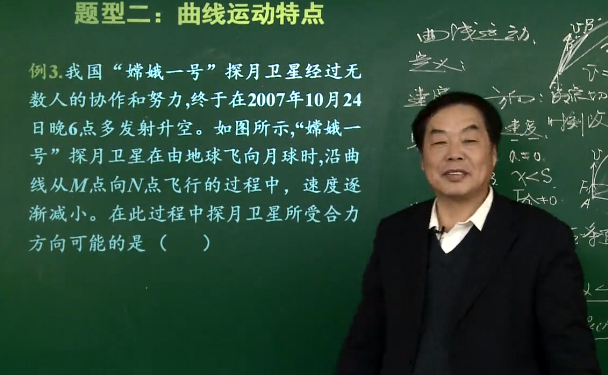 题型二：曲线运动特点
例3.我国“嫦娥一号”探月卫星经过无
数人的协作和努力,终于在2007年10月24
日晚6点多发射升空。如图所示,“嫦娥一
号”探月卫星在由地球飞向月球时,沿曲
线从M点向N点飞行的过程中，速度逐
渐减小。在此过程中探月卫星所受合力
方向可能的是（　　）
曲线运动
定义：
速度
方向：
a=0
x<S